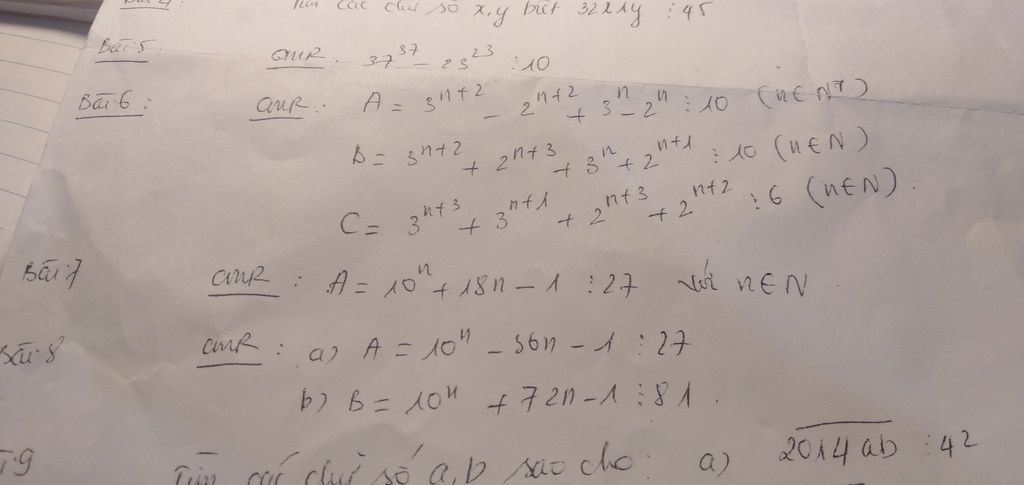 Tìm các chữ số x,y biết 32x1y ⋮ 45
Bài 5 CMR: 37^37 - 23^23 ⋮ 10
Bài 6: CMR: A = 3^{n+2} - 2^{n+2} + 3^n - 2^n ⋮ 10 (n ∈ N*)
B = 3^{n+2} + 2^{n+3} + 3^n + 2^{n+1} ⋮ 10 (n ∈ N)
C = 3^{n+3} + 3^{n+1} + 2^{n+3} + 2^{n+2} ⋮ 6 (n ∈ N).
Bài 7 CMR: A = 10^n + 18n - 1 ⋮ 27 với n ∈ N
Bài 8 CMR: a) A = 10^n - 36n - 1 ⋮ 27
b) B = 10^n + 72n - 1 ⋮ 81.
9 Tìm các chữ số a,b sao cho: a) \overline{2014ab} ⋮ 42